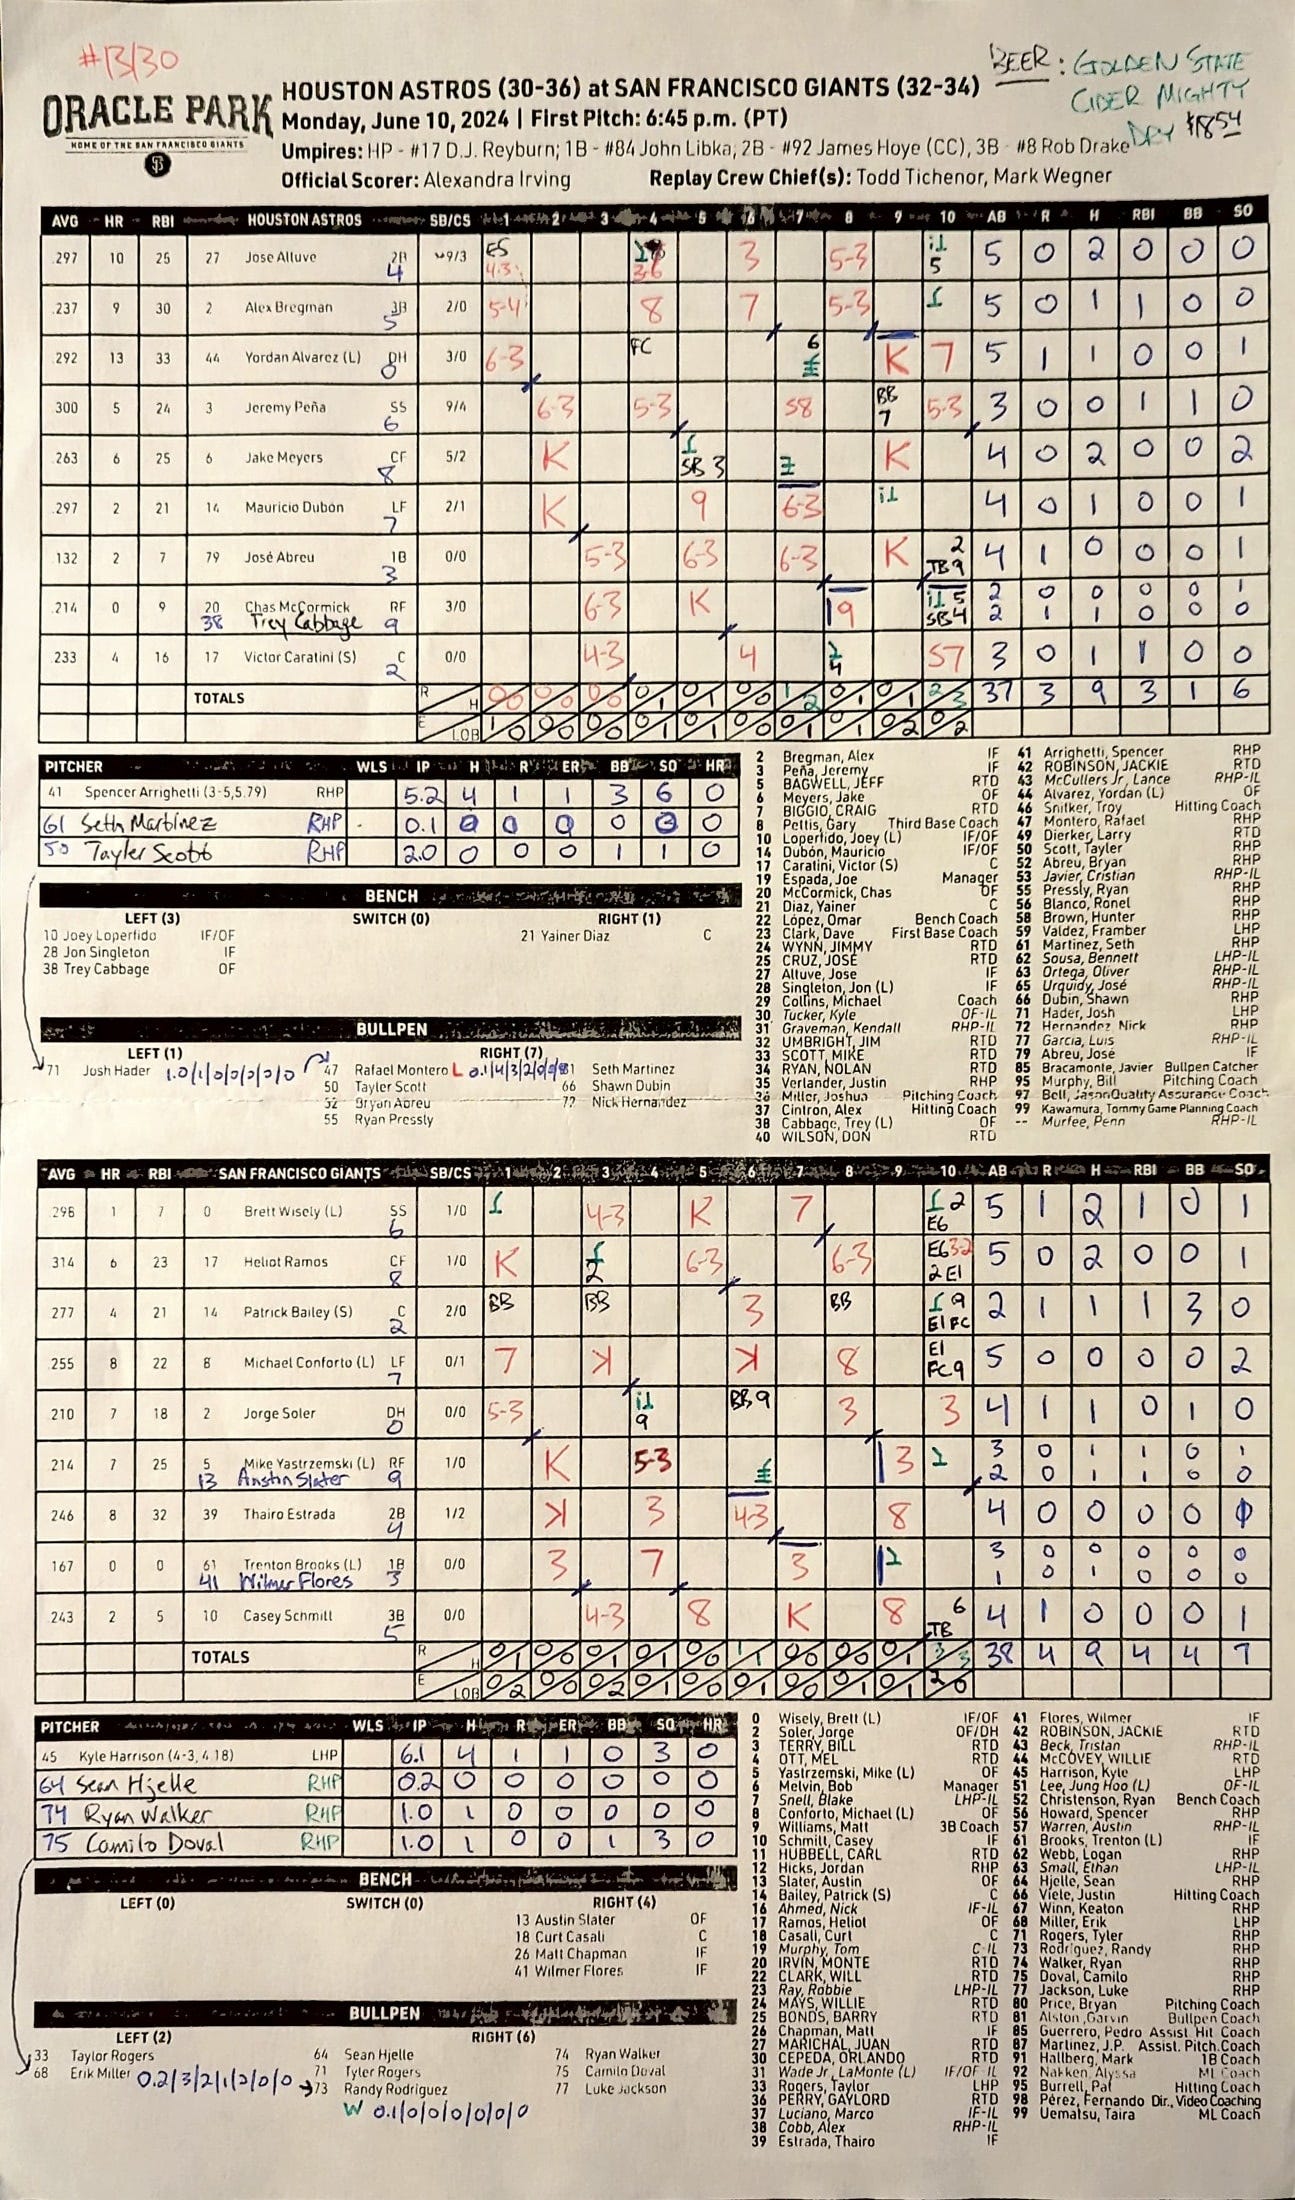 #13/30
BEER: GOLDEN STATE
CIDER MIGHTY
DRY $18.54
ORACLE PARK
HOME OF THE SAN FRANCISCO GIANTS
HOUSTON ASTROS (30-36) at SAN FRANCISCO GIANTS (32-34)
Monday, June 10, 2024 | First Pitch: 6:45 p.m. (PT)
Umpires: HP - #17 D.J. Reyburn; 1B - #84 John Libka; 2B - #92 James Hoye (CC), 3B - #8 Rob Drake
Official Scorer: Alexandra Irving Replay Crew Chief(s): Todd Tichenor, Mark Wegner
AVG HR RBI HOUSTON ASTROS SB/CS 1 2 3 4 5 6 7 8 9 10 AB R H RBI BB SO
.297 10 25 27 Jose Altuve 2B 4 9/3 3 5-3 5 5 0 2 0 0 0
.237 9 30 2 Alex Bregman 3B 5 2/0 5-4 8 7 5-3 5 0 1 1 0 0
.292 13 33 44 Yordan Alvarez (L) DH 0 3/0 6-3 FC 6 K 7 5 1 1 0 0 1
.300 5 24 3 Jeremy Peña SS 6 9/4 6-3 5-3 S8 BB 7 5-3 3 0 0 1 1 0
.263 6 25 6 Jake Meyers CF 8 5/2 K SB 3 K 4 0 2 0 0 2
.297 2 21 14 Mauricio Dubón LF 7 2/1 K 9 6-3 4 0 1 0 0 1
.132 2 7 79 José Abreu 1B 3 0/0 5-3 6-3 6-3 K 2 TB 9 4 1 0 0 0 1
.214 0 9 20 Chas McCormick RF 3/0 6-3 K 9 5 2 0 0 0 0 1
38 Trey Cabbage 9 SB4 2 1 1 0 0 0
.233 4 16 17 Victor Caratini (S) C 2 0/0 4-3 4 4 S7 3 0 1 1 0 0
TOTALS R H 0/0 0/0 0/0 0/1 0/1 0/0 1/2 0/1 0/1 2/3 37 3 9 3 1 6
E LOB 1/0 0/0 0/0 0/1 0/1 0/0 0/1 0/1 0/2 0/2
PITCHER WLS IP H R ER BB SO HR
41 Spencer Arrighetti (3-5,5.79) RHP 5.2 4 1 1 3 6 0
61 Seth Martinez RHP 0.1 0 0 0 0 0 0
50 Tayler Scott RHP 2.0 0 0 0 1 1 0
BENCH
LEFT (3) SWITCH (0) RIGHT (1)
10 Joey Loperfido IF/OF 21 Yainer Diaz C
28 Jon Singleton IF
38 Trey Cabbage OF
BULLPEN
LEFT (1) RIGHT (7)
71 Josh Hader 1.0/1/0/0/0/0/0 47 Rafael Montero L Seth Martinez
50 Tayler Scott 66 Shawn Dubin
52 Bryan Abreu 72 Nick Hernandez
55 Ryan Pressly
2 Bregman, Alex IF
3 Peña, Jeremy IF
5 BAGWELL, JEFF RTD
6 Meyers, Jake OF
7 BIGGIO, CRAIG RTD
8 Pettis, Gary Third Base Coach
10 Loperfido, Joey (L) IF/OF
14 Dubón, Mauricio IF/OF
17 Caratini, Victor (S) C
19 Espada, Joe Manager
20 McCormick, Chas OF
21 Diaz, Yainer C
22 López, Omar Bench Coach
23 Clark, Dave First Base Coach
24 WYNN, JIMMY RTD
25 CRUZ, JOSÉ RTD
27 Altuve, Jose IF
28 Singleton, Jon (L) IF
29 Collins, Michael Coach
30 Tucker, Kyle OF-IL
31 Graveman, Kendall RHP-IL
32 UMBRIGHT, JIM RTD
33 SCOTT, MIKE RTD
34 RYAN, NOLAN RTD
35 Verlander, Justin RHP
36 Miller, Joshua Pitching Coach
37 Cintron, Alex Hitting Coach
38 Cabbage, Trey (L) OF
40 WILSON, DON RTD
41 Arrighetti, Spencer RHP
42 ROBINSON, JACKIE RTD
43 McCullers Jr., Lance RHP-IL
44 Alvarez, Yordan (L) OF
46 Snitker, Troy Hitting Coach
47 Montero, Rafael RHP
49 Dierker, Larry RTD
50 Scott, Tayler RHP
52 Abreu, Bryan RHP
53 Javier, Cristian RHP-IL
55 Pressly, Ryan RHP
56 Blanco, Ronel RHP
58 Brown, Hunter RHP
59 Valdez, Framber LHP
61 Martinez, Seth RHP
62 Sousa, Bennett LHP-IL
63 Ortega, Oliver RHP-IL
65 Urquidy, José RHP-IL
66 Dubin, Shawn RHP
71 Hader, Josh LHP
72 Hernandez, Nick RHP
77 Garcia, Luis RHP-IL
79 Abreu, José IF
85 Bracamonte, Javier Bullpen Catcher
95 Murphy, Bill Pitching Coach
97 Bell, Jason Quality Assurance Coach
99 Kawamura, Tommy Game Planning Coach
-- Murfee, Penn RHP-IL
AVG HR RBI SAN FRANCISCO GIANTS SB/CS 1 2 3 4 5 6 7 8 9 10 AB R H RBI BB SO
.298 1 7 0 Brett Wisely (L) SS 6 1/0 4-3 K 7 2 E6 5 1 2 1 0 1
.314 6 23 17 Heliot Ramos CF 8 1/0 K 2 6-3 6-3 E6 3-2 2 E1 5 0 2 0 0 1
.277 4 21 14 Patrick Bailey (S) C 2 2/0 BB BB 3 BB 9 E1 FC 2 1 1 1 3 0
.255 8 22 8 Michael Conforto (L) LF 7 0/1 7 K K 8 E1 FC 9 5 0 0 0 0 2
.210 7 18 2 Jorge Soler DH 0 0/0 5-3 9 BB 9 3 3 4 1 1 0 1 0
.214 7 25 5 Mike Yastrzemski (L) RF 1/0 K 5-3 3 3 0 1 1 0 1
13 Austin Slater 9 2 0 1 1 0 0
.246 8 32 39 Thairo Estrada 2B 4 1/2 K 3 4-3 8 4 0 0 0 0
.167 0 0 61 Trenton Brooks (L) 1B 0/0 3 7 3 3 0 0 0 0 0
41 Wilmer Flores 3 1 0 1 0 0 0
.243 2 5 10 Casey Schmitt 3B 5 0/0 4-3 8 K 8 6 TB 4 1 0 0 0 1
TOTALS R H 0/1 0/0 0/1 0/1 0/0 1/1 0/0 0/0 0/1 3/3 38 4 9 4 4 7
E LOB 0/2 0/0 0/2 0/1 0/0 0/1 0/0 0/1 0/1 2/0
PITCHER WLS IP H R ER BB SO HR
45 Kyle Harrison (4-3, 4.18) LHP 6.1 4 1 1 0 3 0
64 Sean Hjelle RHP 0.2 0 0 0 0 0 0
74 Ryan Walker RHP 1.0 1 0 0 0 0 0
75 Camilo Doval RHP 1.0 1 0 0 1 3 0
BENCH
LEFT (0) SWITCH (0) RIGHT (4)
13 Austin Slater OF
18 Curt Casali C
26 Matt Chapman IF
41 Wilmer Flores IF
BULLPEN
LEFT (2) RIGHT (6)
33 Taylor Rogers 64 Sean Hjelle 74 Ryan Walker
68 Erik Miller 0.2/3/2/1/2/0/0 71 Tyler Rogers 75 Camilo Doval
73 Randy Rodríguez 77 Luke Jackson
W 0.1/0/0/0/0/0/0
0 Wisely, Brett (L) IF/OF
2 Soler, Jorge OF/DH
3 TERRY, BILL RTD
4 OTT, MEL RTD
5 Yastrzemski, Mike (L) OF
6 Melvin, Bob Manager
7 Snell, Blake LHP-IL
8 Conforto, Michael (L) OF
9 Williams, Matt 3B Coach
10 Schmitt, Casey IF
11 HUBBELL, CARL RTD
12 Hicks, Jordan RHP
13 Slater, Austin OF
14 Bailey, Patrick (S) C
16 Ahmed, Nick IF-IL
17 Ramos, Heliot OF
18 Casali, Curt C
19 Murphy, Tom C-IL
20 IRVIN, MONTE RTD
22 CLARK, WILL RTD
23 Ray, Robbie LHP-IL
24 MAYS, WILLIE RTD
25 BONDS, BARRY RTD
26 Chapman, Matt IF
27 MARICHAL, JUAN RTD
30 CEPEDA, ORLANDO RTD
31 Wade Jr., LaMonte (L) IF/OF IL
33 Rogers, Taylor LHP
36 PERRY, GAYLORD RTD
37 Luciano, Marco IF-IL
38 Cobb, Alex RHP-IL
39 Estrada, Thairo IF
41 Flores, Wilmer IF
42 ROBINSON, JACKIE RTD
43 Beck, Tristan RHP-IL
44 McCOVEY, WILLIE RTD
45 Harrison, Kyle LHP
51 Lee, Jung Hoo (L) OF-IL
52 Christenson, Ryan Bench Coach
56 Howard, Spencer RHP
57 Warren, Austin RHP-IL
61 Brooks, Trenton (L) IF
62 Webb, Logan RHP
63 Small, Ethan LHP-IL
64 Hjelle, Sean RHP
66 Viele, Justin Hitting Coach
67 Winn, Keaton RHP
68 Miller, Erik LHP
71 Rogers, Tyler RHP
73 Rodríguez, Randy RHP
74 Walker, Ryan RHP
75 Doval, Camilo RHP
77 Jackson, Luke RHP
80 Price, Bryan Pitching Coach
81 Alston, Garvin Bullpen Coach
85 Guerrero, Pedro Assist. Hit. Coach
87 Martinez, J.P. Assist. Pitch. Coach
91 Hallberg, Mark 1B Coach
92 Nakken, Alyssa ML Coach
95 Burrell, Pat Hitting Coach
98 Pérez, Fernando Dir., Video Coaching
99 Uematsu, Taira ML Coach